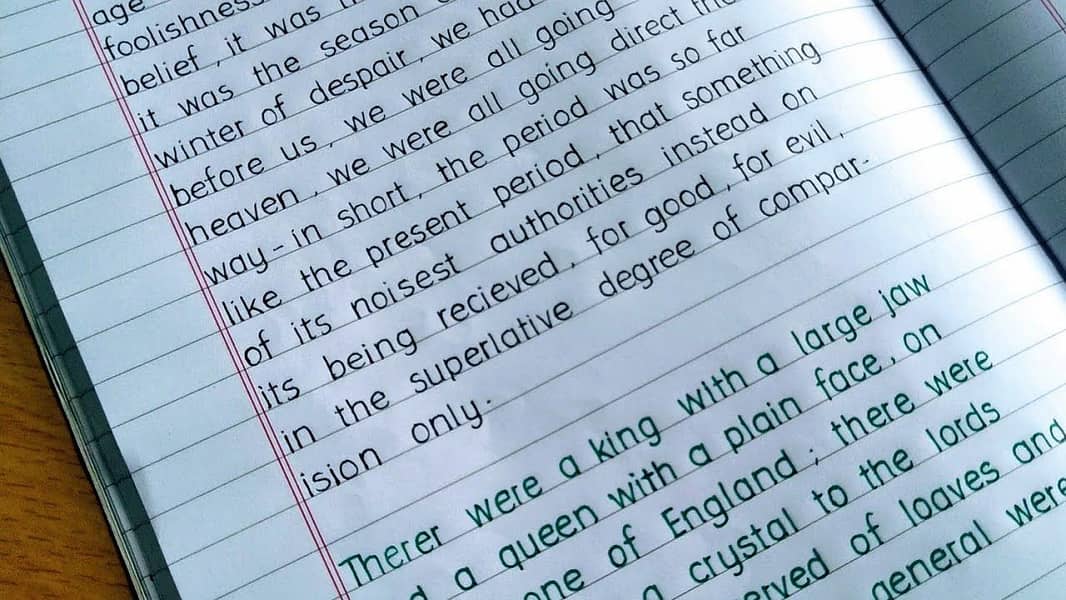 age
foolishness
belief , it was
it was the season
winter of despair , we had
before us , we were all going
heaven , we were all going direct the
way - in short , the period was so far
like the present period , that something
of its noisest authorities instead on
its being recieved , for good , for evil ,
in the superlative degree of compar-
ision only .
Therer were a king with a large jaw
a queen with a plain face , on
one of England ; there were
crystal to the lords
erved of loaves and
general were